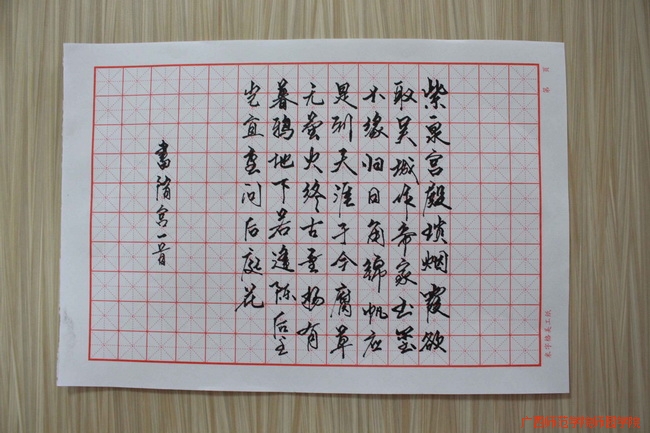 第 页
紫泉宫殿锁烟霞欲
取吴城作帝家玉玺
不缘归日角锦帆应
是到天涯于今腐草
无萤火终古垂杨有
暮鸦地下若逢陈后主
岂宜重问后庭花
书隋宫一首
米字格美工纸